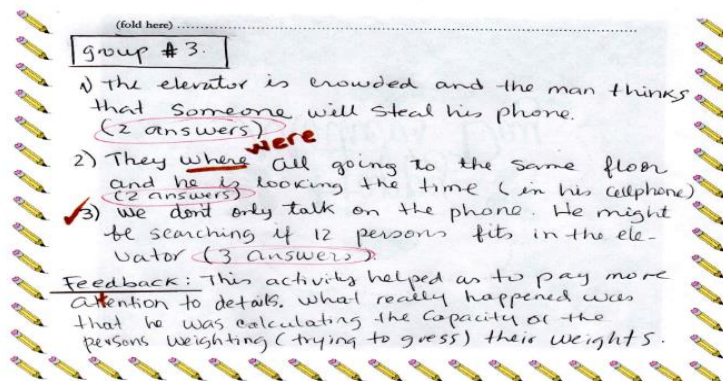 (fold here)
group # 3.
1) The elevator is crowded and the man thinks
that someone will steal his phone.
(2 answers)
were
2) They where all going to the same floor
and he is looking the time (in his cellphone)
(2 answers)
3) We dont only talk on the phone. He might
be searching if 12 persons fits in the ele-
vator (3 answers)
Feedback: This activity helped as to pay more
attention to details. What really happened was
that he was calculating the capacity or the
persons weighting (trying to gress) their weights.